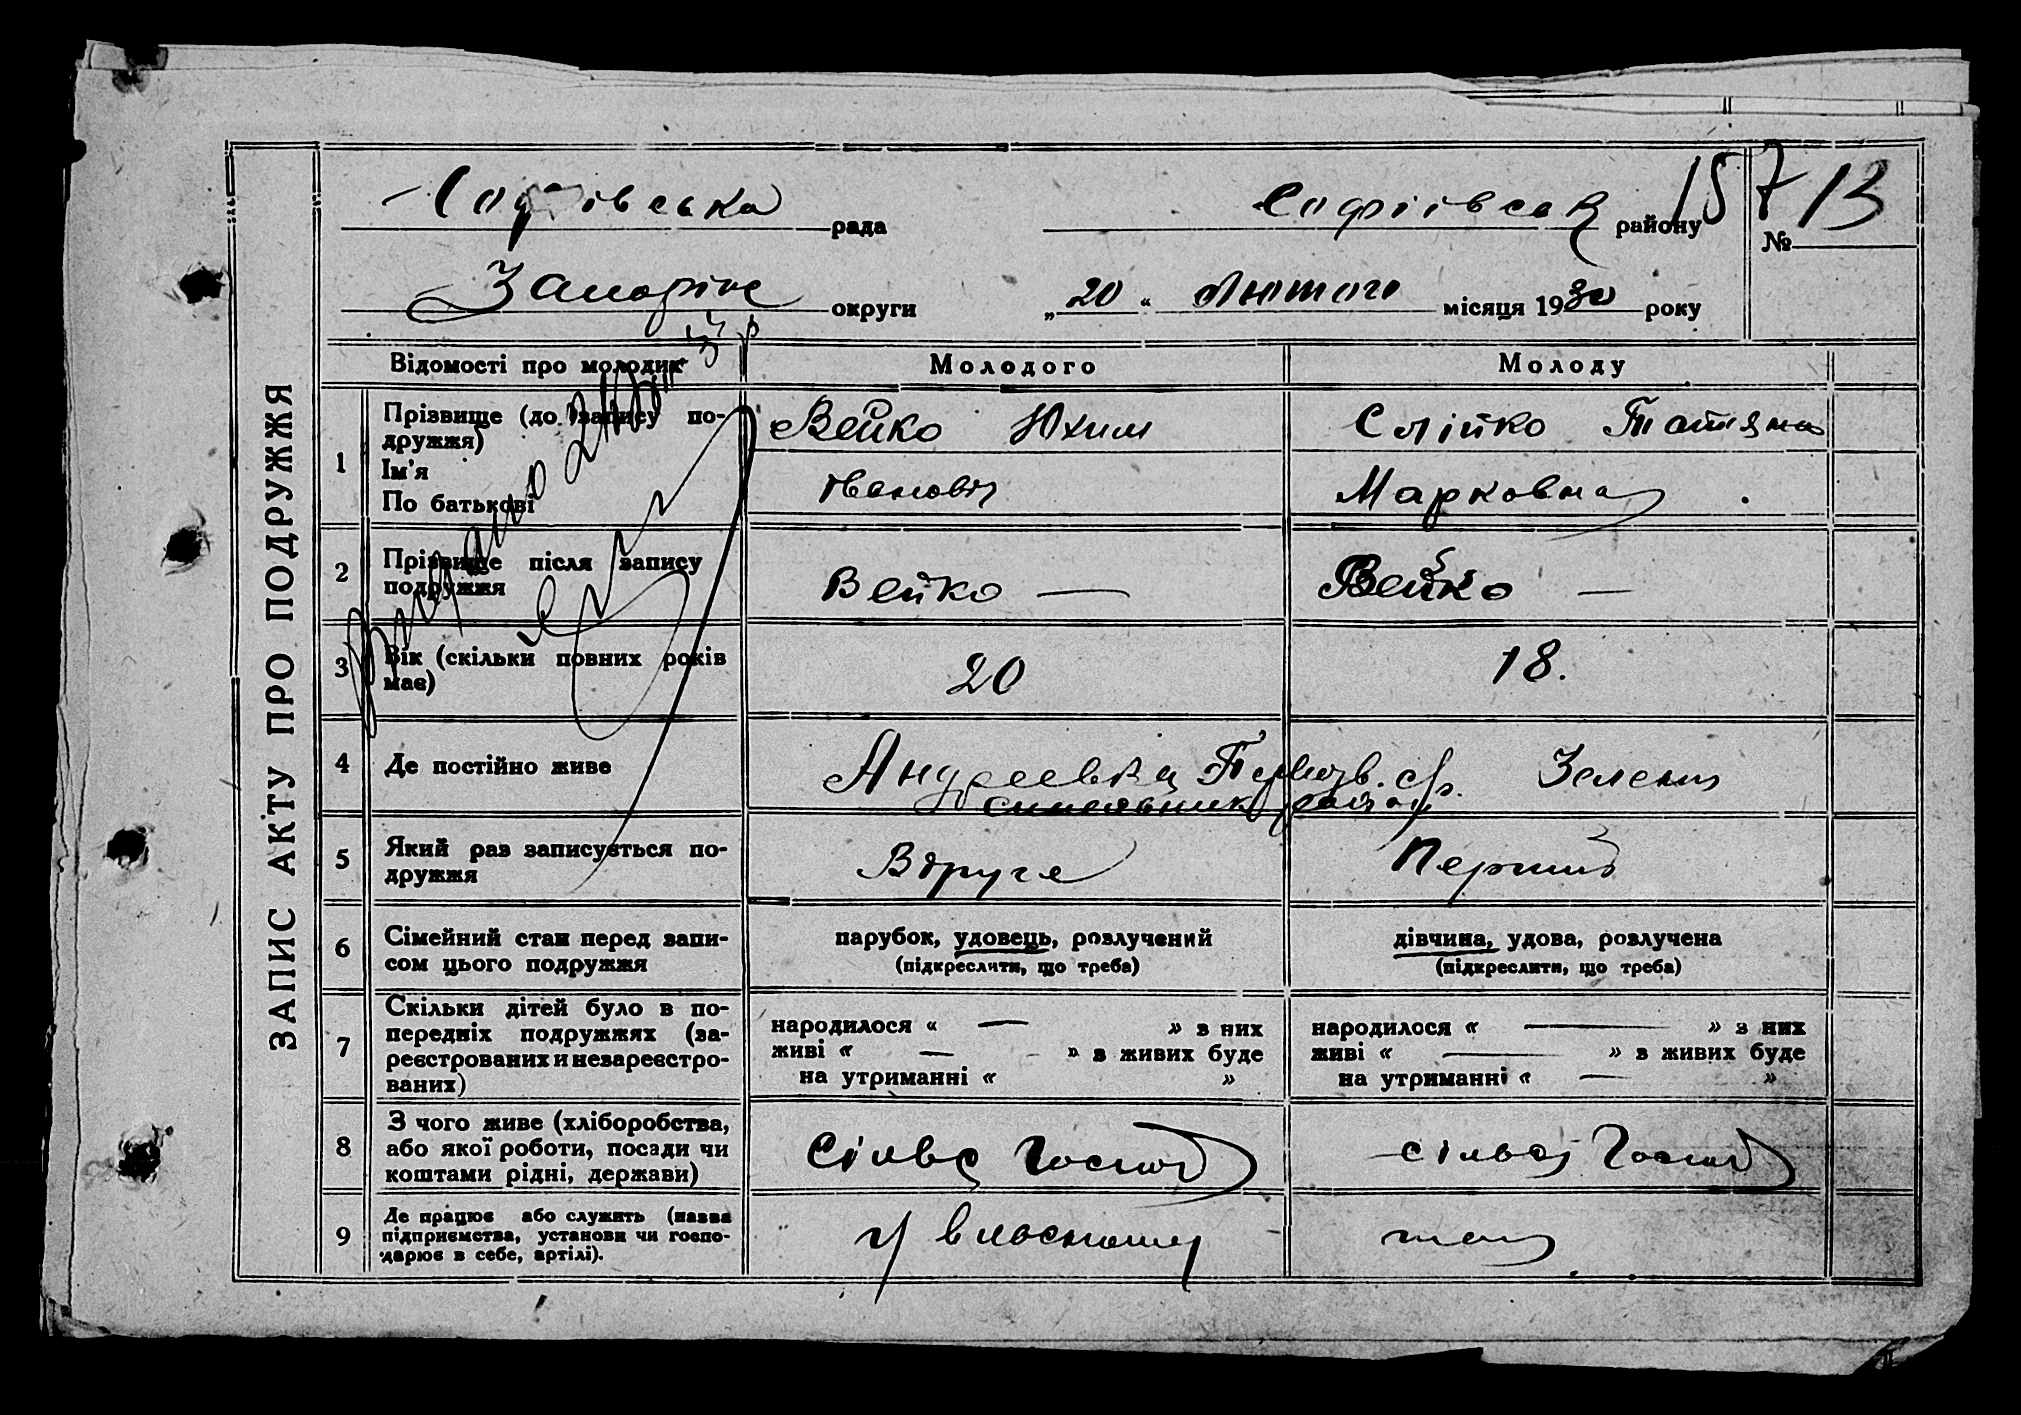 ЗАПИС АКТУ ПРО ПОДРУЖЖЯ
Софіївська рада Софіївськ району 157
№ 13
Запоріж округи „20“ Лютого місяця 1930 року
Відомості про молодих Молодого Молоду
1 Прізвище (до запису подружжя) Вейко Юхим Слінко Татяна
Ім'я
По батькові Іванович Марковна
2 Прізвище після запису подружжя Вейко — Вейко —
3 Вік (скільки повних років має) 20 18.
4 Де постійно живе Андреевка с/р. Зелена
5 Який раз записується подружжя Вдруге Перший
6 Сімейний стан перед записом цього подружжя парубок, удовець, розлучений дівчина, удова, розлучена
(підкреслити, що треба) (підкреслити, що треба)
7 Скільки дітей було в попередніх подружжях (зареєстрованих и незареєстрованих) народилося « — » з них народилося « — » з них
живі « — » з живих буде живі « — » з живих буде
на утриманні « » на утриманні « — »
8 З чого живе (хліборобства, або якої роботи, посади чи коштами рідні, держави) Сільвс Господ сільсь Господ
9 Де працює або служить (назва підприємства, установи чи господарює в себе, артілі). у власному